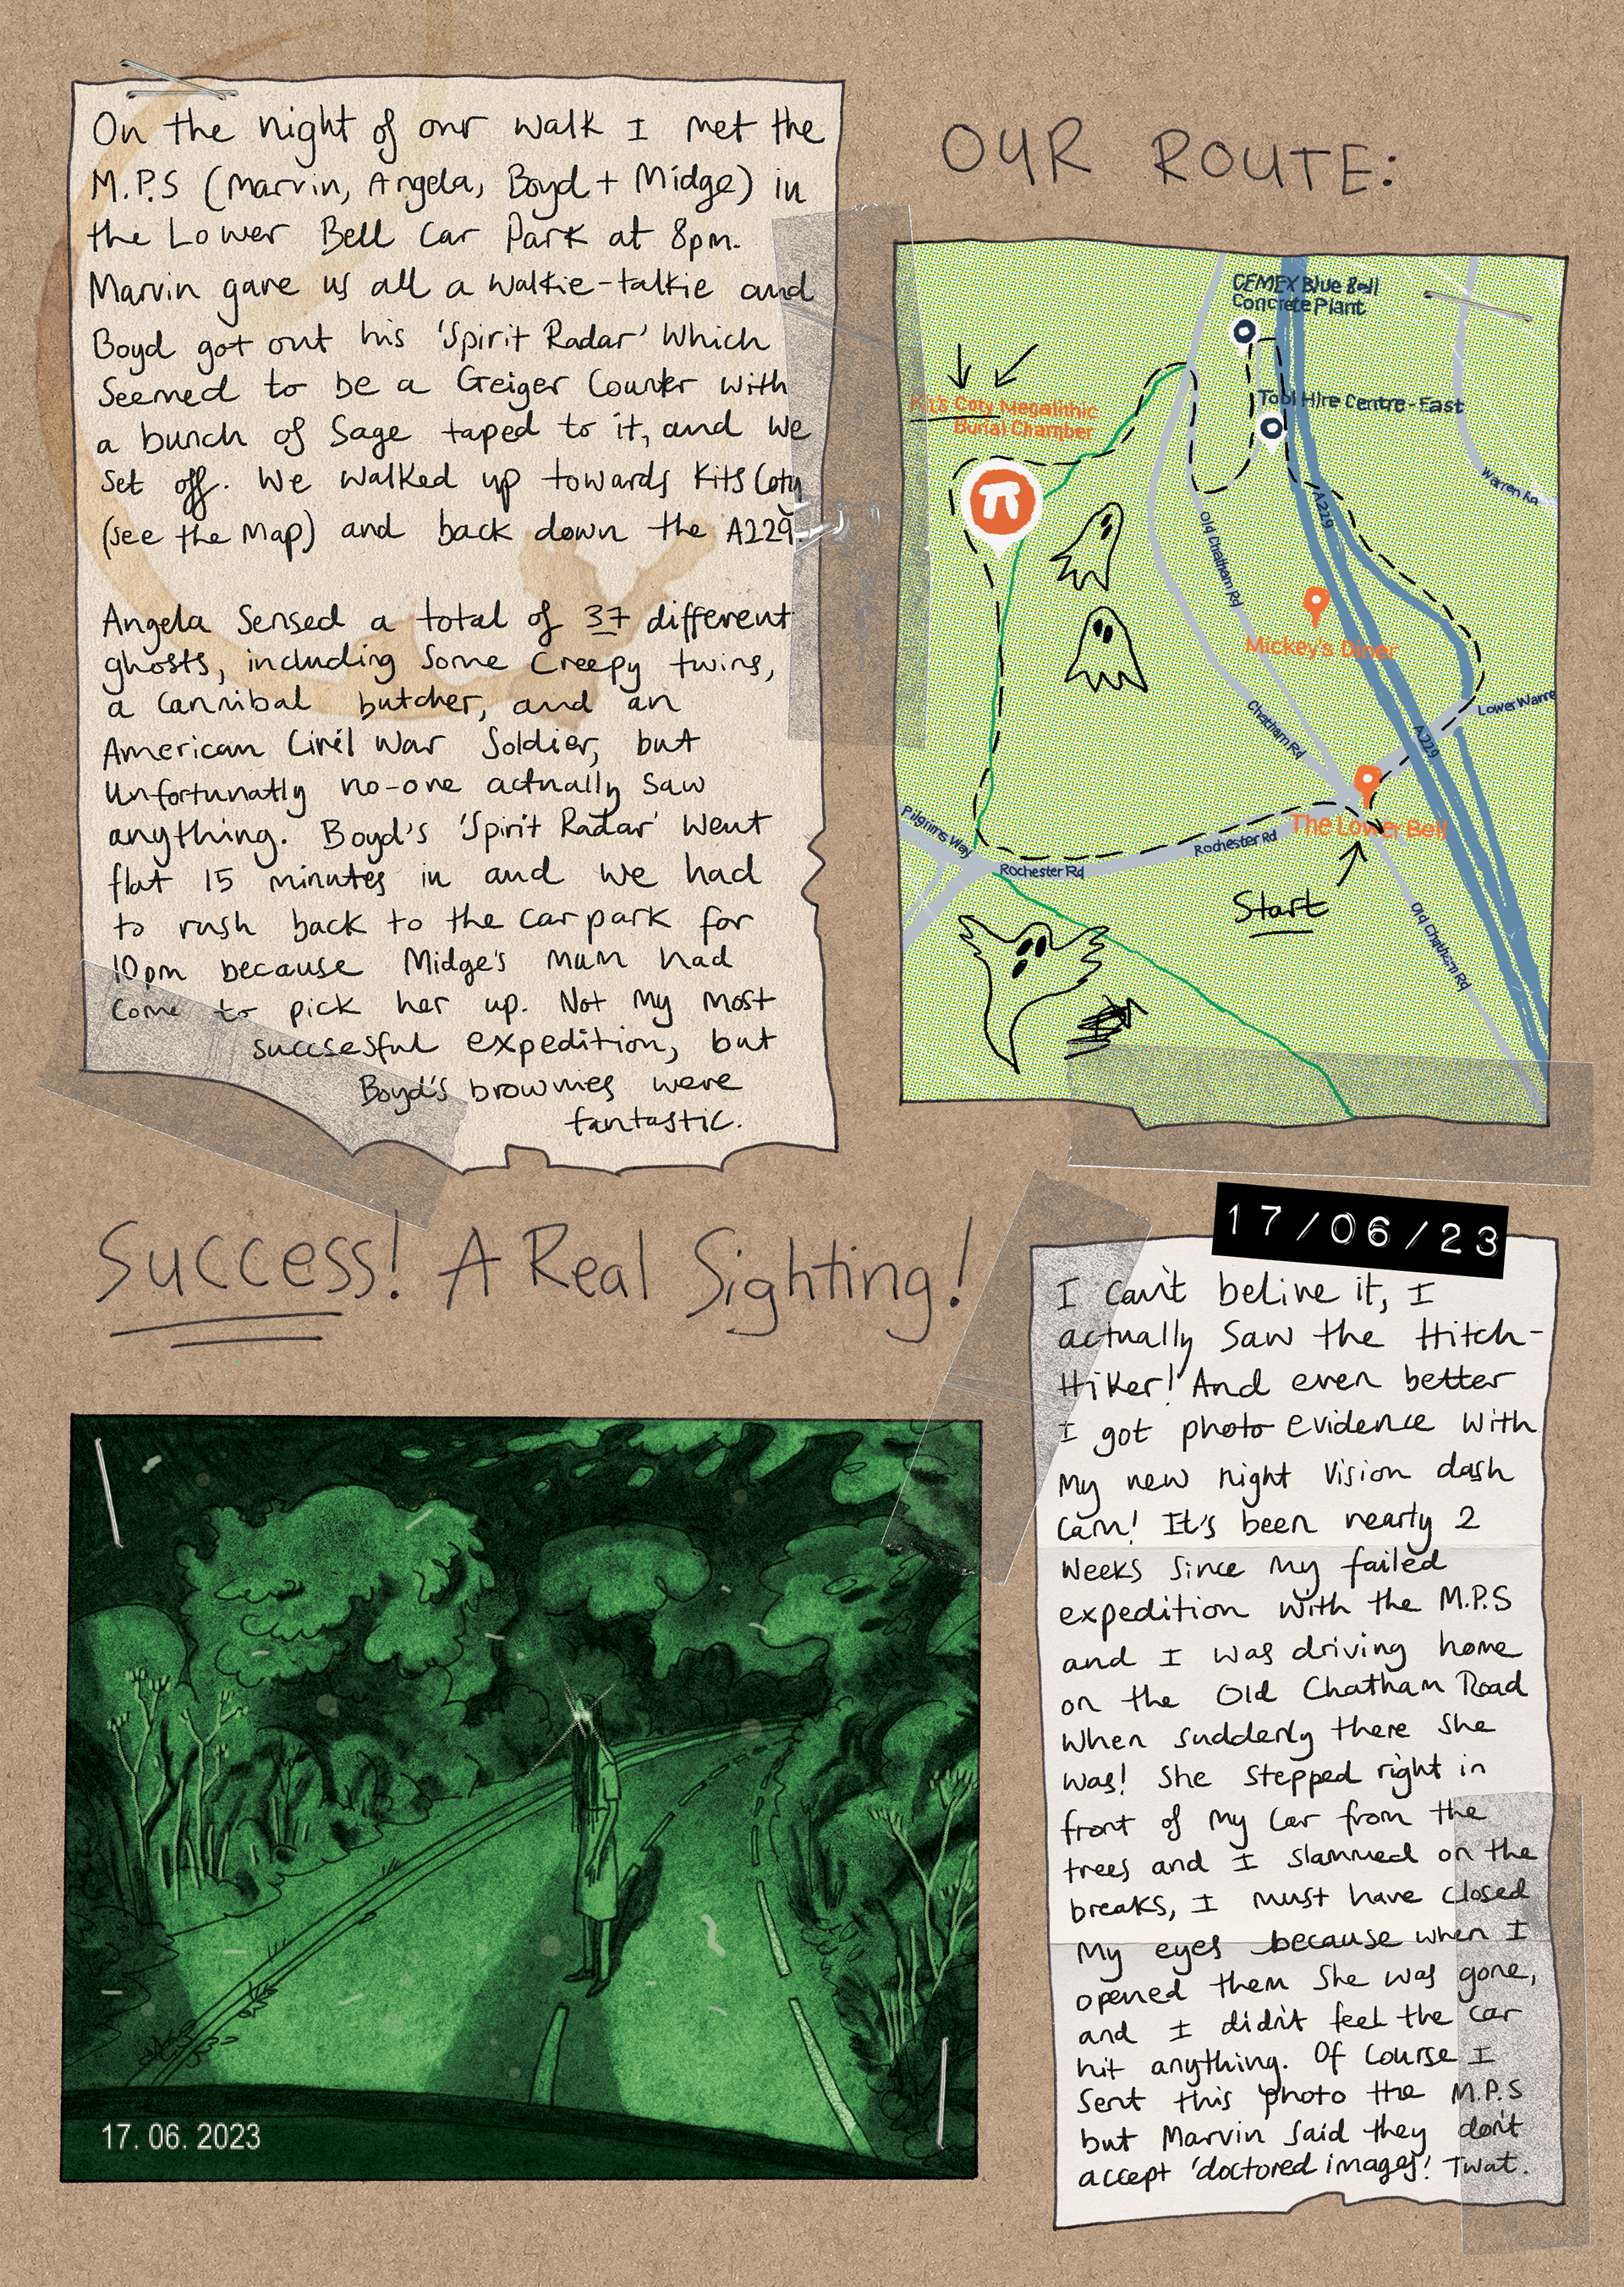 On the night of our walk I met the
M.P.S (Marvin, Angela, Boyd + Midge) in
the Lower Bell Car Park at 8pm.
Marvin gave us all a walkie-talkie and
Boyd got out his 'Spirit Radar' Which
Seemed to be a Geiger Counter with
a bunch of Sage taped to it, and we
set off. We walked up towards Kits Coty
(see the Map) and back down the A229.
Angela Sensed a total of 37 different
ghosts, including Some Creepy twins,
a Cannibal butcher, and an
American Civil War Soldier, but
Unfortunatly no-one actually saw
anything. Boyd's 'Spirit Radar' Went
flat 15 minutes in and we had
to rush back to the car park for
10pm because Midge's mum had
Come to pick her up. Not My most
succsesful expedition, but
Boyd's brownies were
fantastic.
OUR ROUTE:
CEMEX Blue Bell
Concrete Plant
Kits Coty Megalithic
Burial Chamber
Tool Hire Centre - East
Warren Rd
A229
Old Chatham Rd
Mickey's Diner
Chatham Rd
Lower Warre
A229
Pilgrims Way
The Lower Bell
Rochester Rd
Rochester Rd
Start
Old Chatham Rd
Success! A Real Sighting!
17/06/23
I can't belive it, I
actually Saw the Hitch-
Hiker! And even better
I got photo evidence with
My new night vision dash
cam! It's been nearly 2
weeks since my failed
expedition with the M.P.S
and I was driving home
on the Old Chatham Road
when suddenly there she
was! She stepped right in
front of my car from the
trees and I slammed on the
breaks, I must have closed
My eyes because when I
opened them she was gone,
and I didn't feel the car
hit anything. Of Course I
Sent this photo the M.P.S
but Marvin said they don't
accept 'doctored images'! Twat.
17. 06. 2023